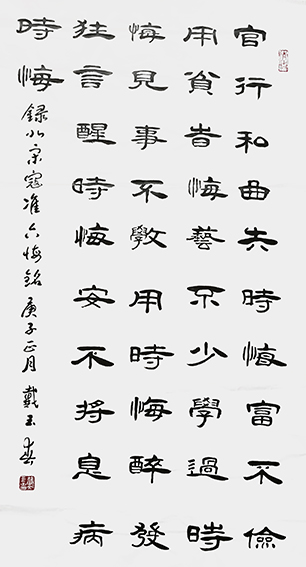 官行私曲失時悔富不儉
用貧旹悔藝不少學過時
悔見事不斆用時悔醉發
狂言醒時悔安不將息病
時悔 錄北宋寇准六悔銘 庚子正月 戴玉春